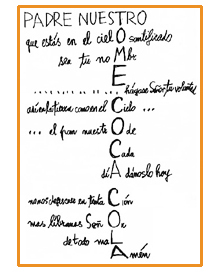 PADRE NUESTRO
que estás en el cielO santificado
sea tu noMbre
................ háGase Señor tu voluntad
así en la tierra como en el Cielo ...
... el pan nuestrO de
Cada
díA dánoslo hoy
no nos dejes caer en tentaCión
mas líbranos SeñOr
de todo maL
Amén